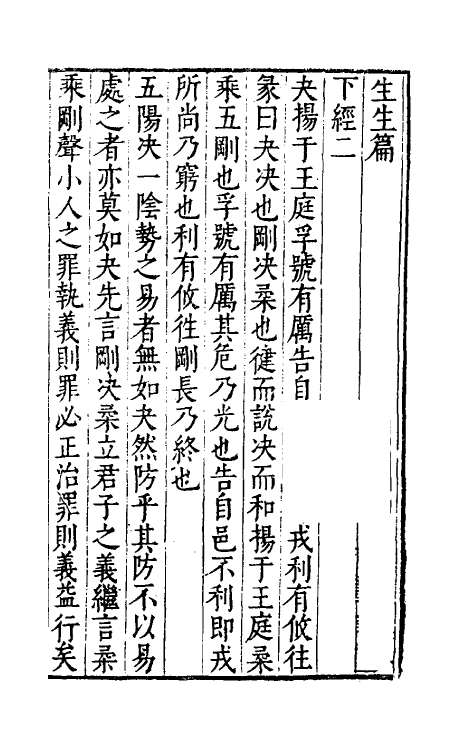 生生篇
下經二
夬揚于王庭孚號有厲告自 戎利有攸往
彖曰夬決也剛決柔也健而說决而和揚于王庭柔
乘五剛也孚號有厲其危乃光也告自邑不利即戎
所尚乃窮也利有攸徃剛長乃終也
五陽决一陰勢之易者無如夬然防乎其防不以易
處之者亦莫如夬先言剛决柔立君子之義繼言柔
乘剛聲小人之罪執義則罪必正治罪則義益行矣